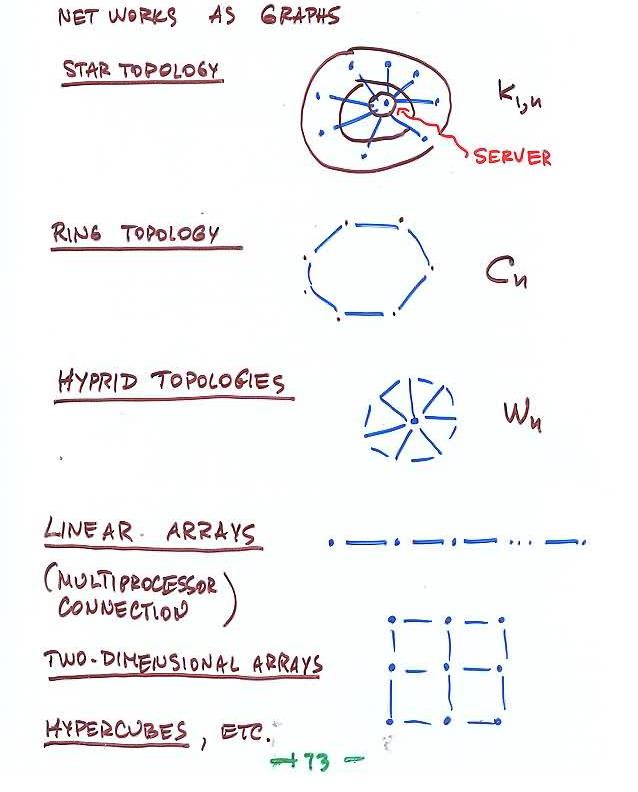 NETWORKS AS GRAPHS
STAR TOPOLOGY
K1,n
SERVER
RING TOPOLOGY
Cn
HYPRID TOPOLOGIES
Wn
LINEAR ARRAYS
...
(MULTIPROCESSOR
CONNECTION)
TWO-DIMENSIONAL ARRAYS
HYPERCUBES, ETC.
- 73 -